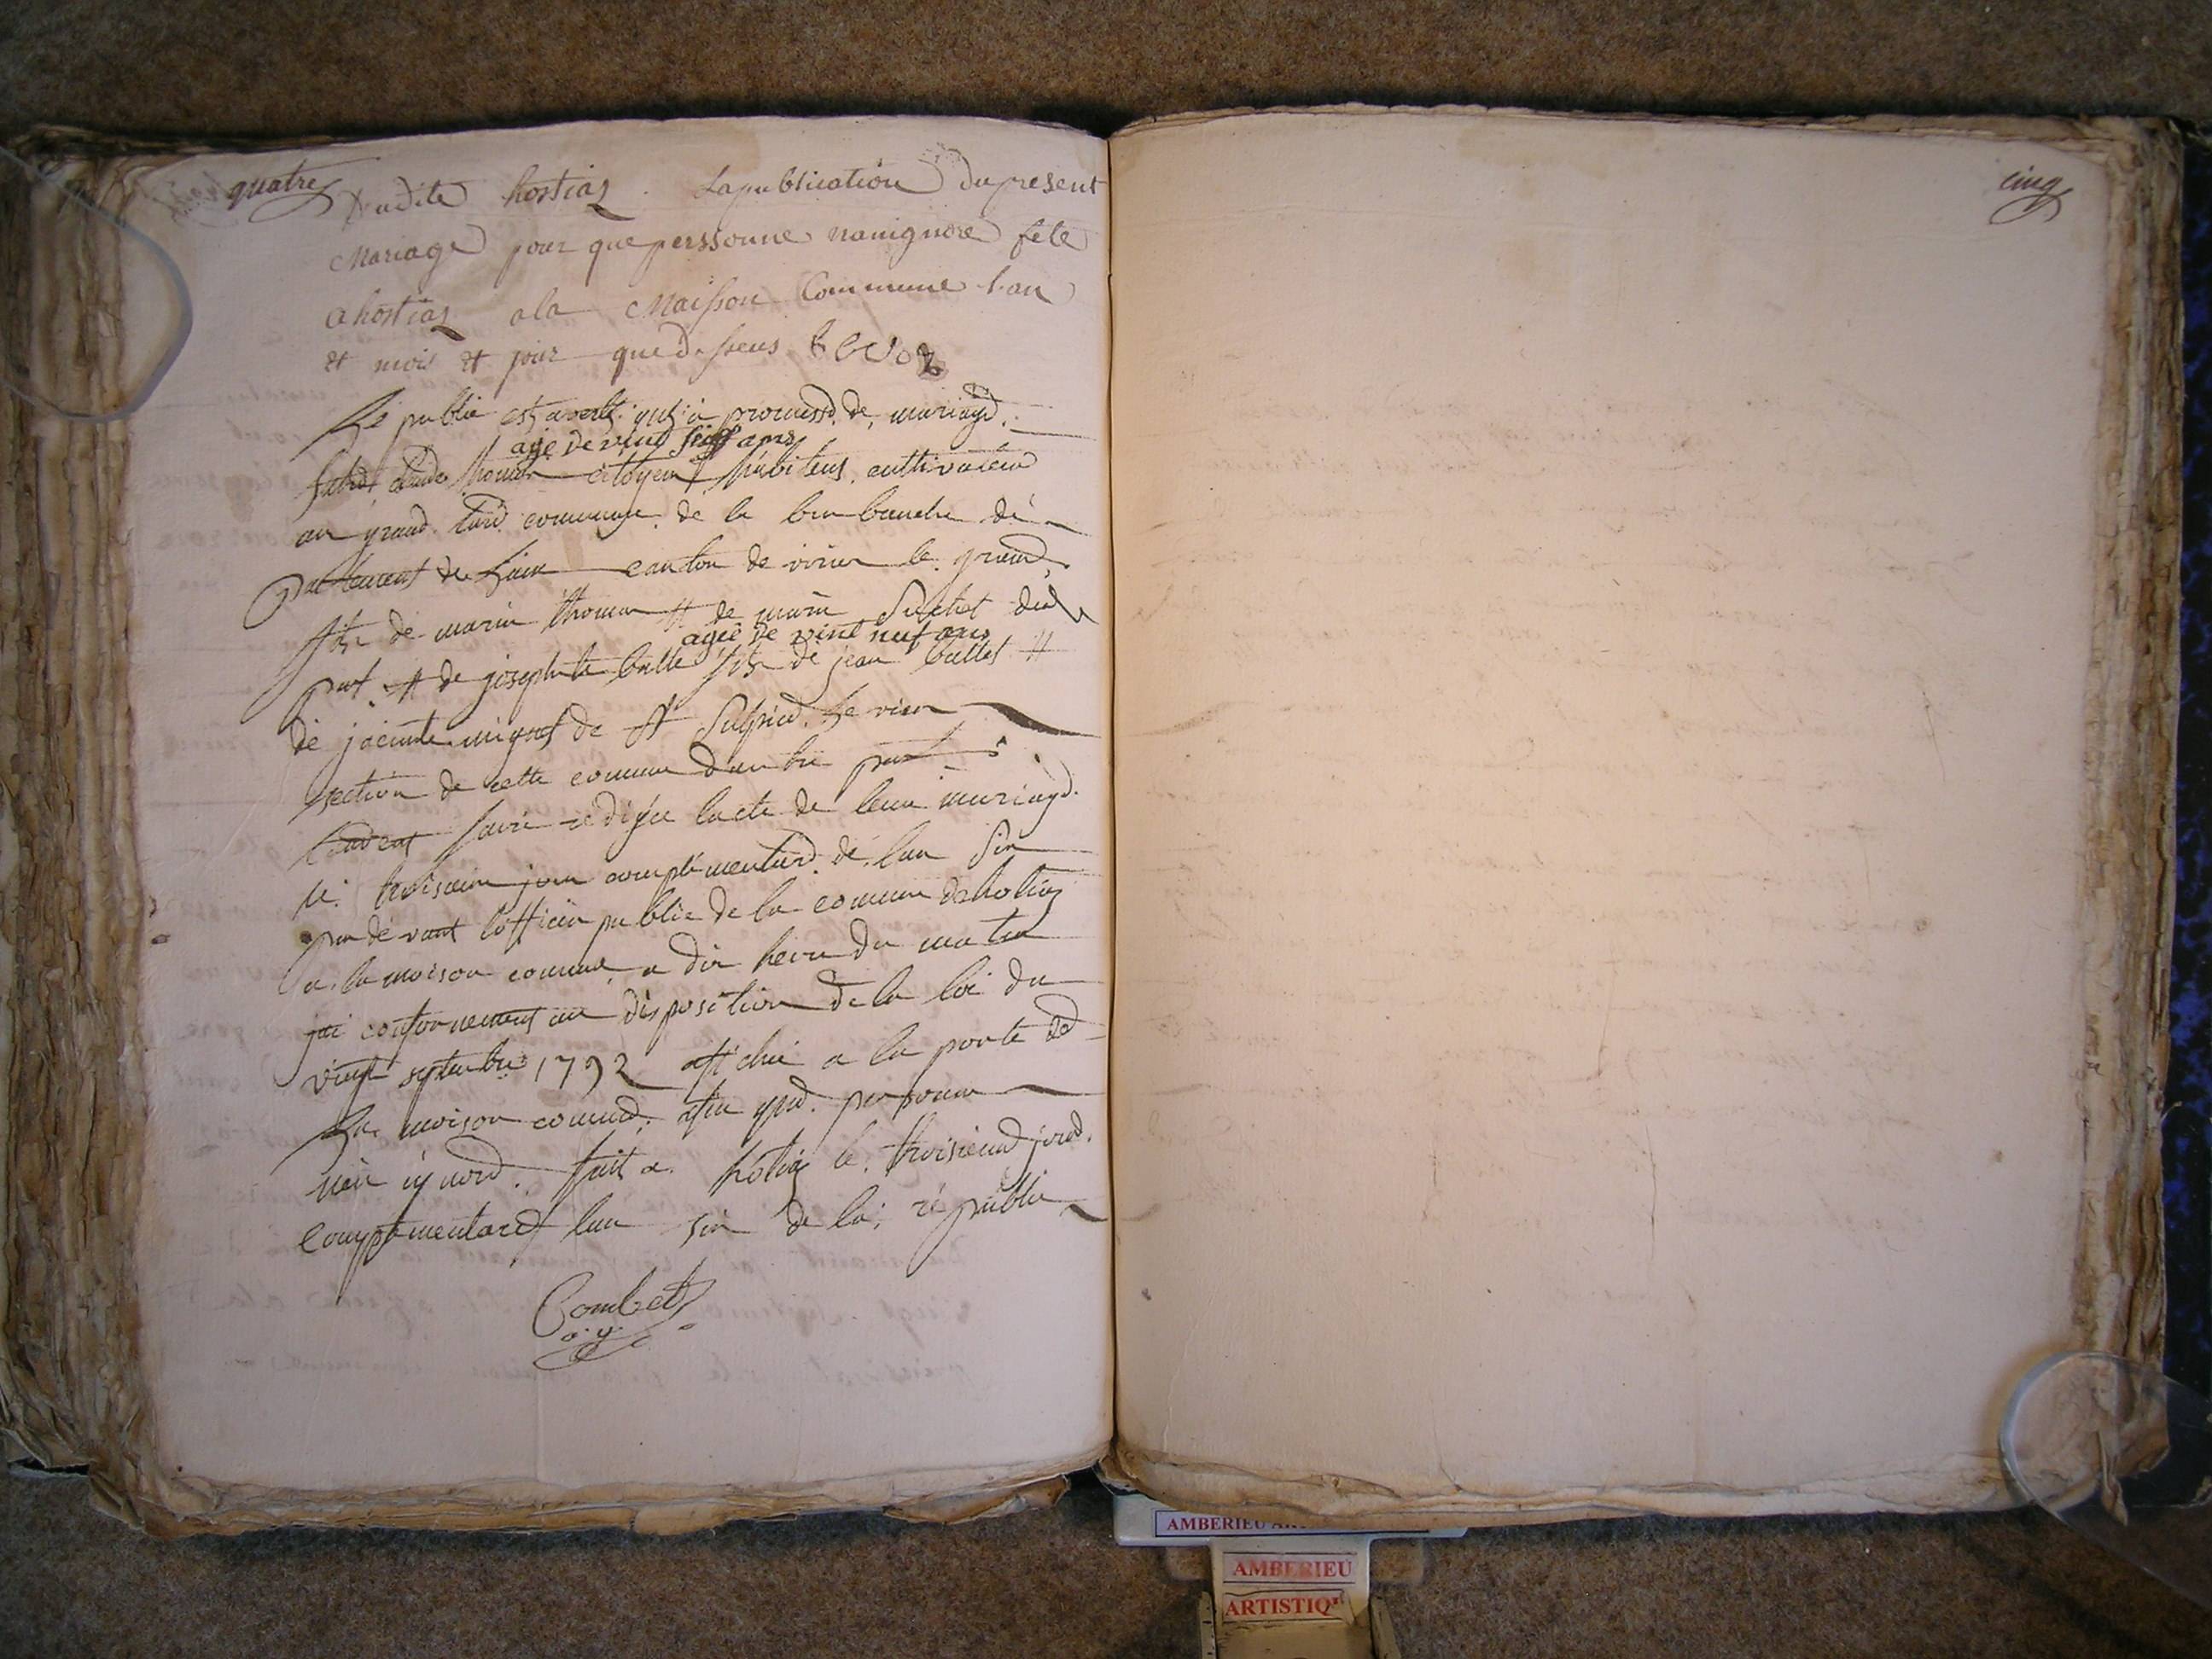 quatre
dudite hostiaz . La publication du present
Mariage pour que perssonne nanignore fete
a hostiaz ala Maisson Commune l'an
et mois et jour que dessus
Le public est averti quil ia promesse de mariage
age de vint six ans
entre Claude thomas citoyen habitens cultivateur
au grand commune de la burbanche dé
partement de Lain canton de virieu le grand
fils de marin thomas et de marie Suchet dune
part et de josephte balle fille de jean ballet et
agée de vint neuf ans
de jacinte mignot de St Sulpice Le vieu
section de cette commune dautre part
faire redigée lacte de leur mariage
le troisieme jour complementaire de lan six
par devant lofficier public de la commune de hotiaz
a la maison commune a dix heure du matin
jai conformement au disposition de la loi du
vingt septembre 1792 affiché a la porte de
la maison commune afin que personne
nen ignore. fait a hotiaz le troisieme jour
complementaire lan six de la republi
Combet
o. p.
cinq
AMBERIEU
AMBERIEU
ARTISTIQ